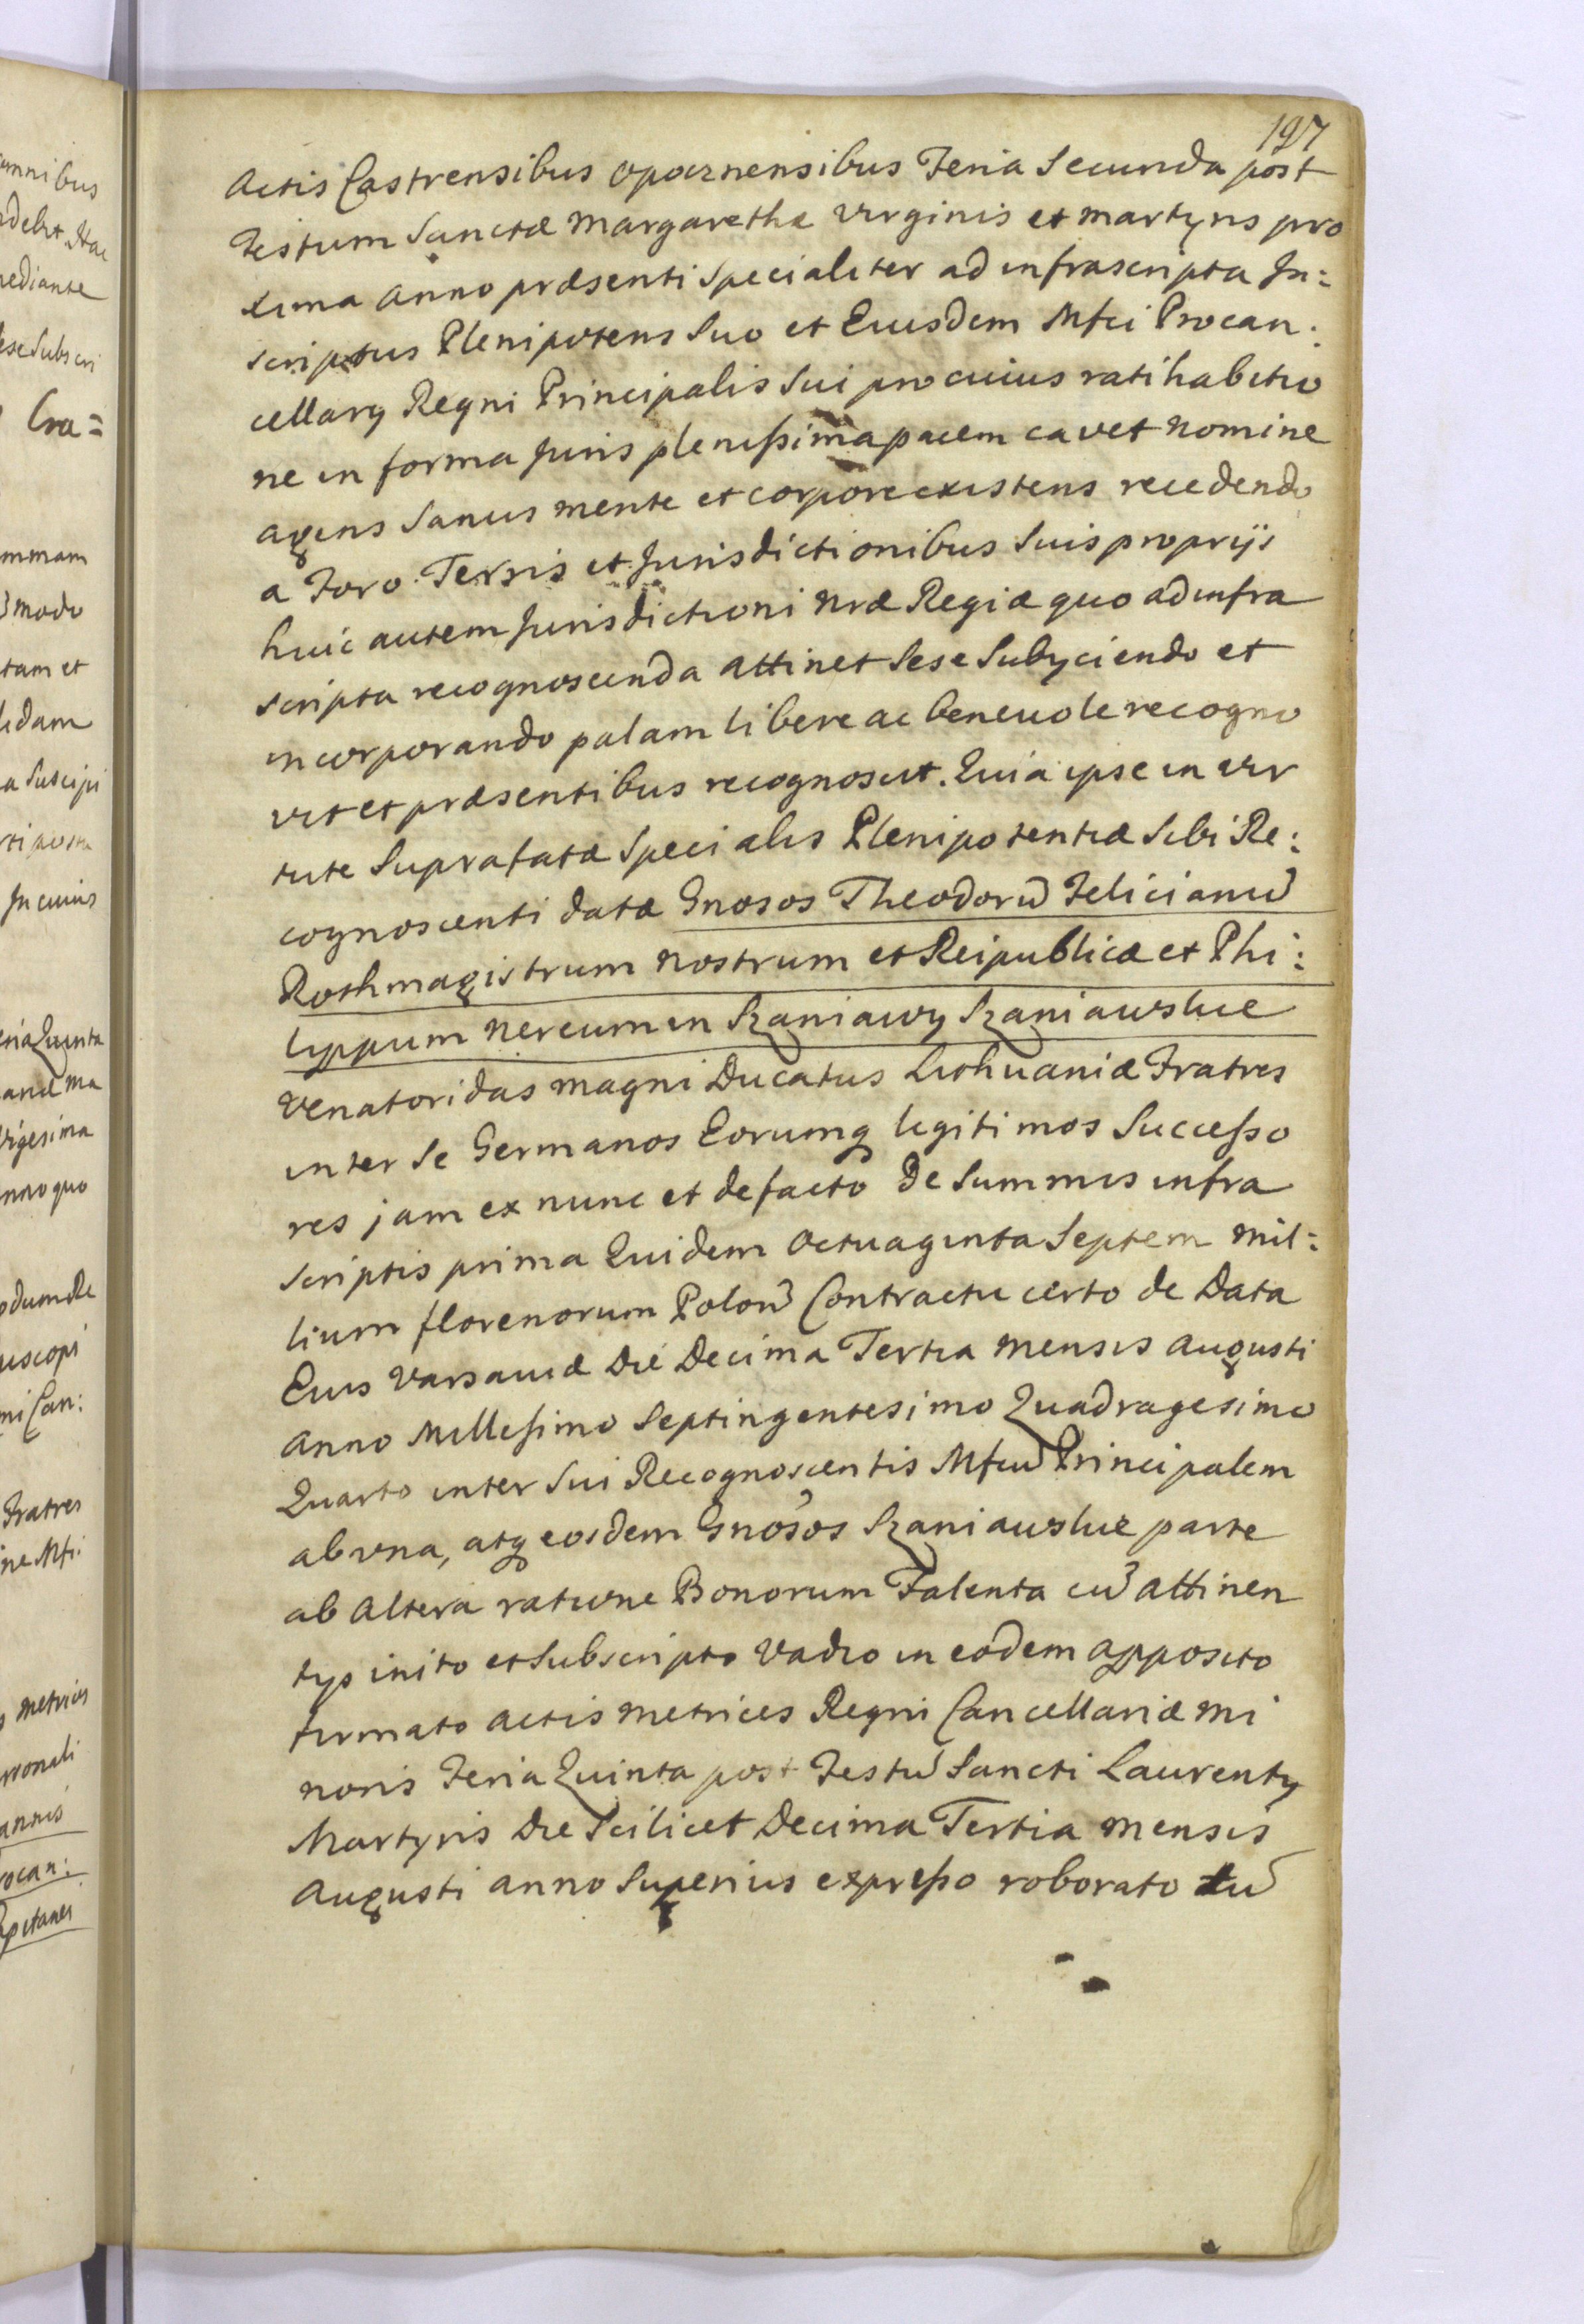 197
Actis Castrensibus Opocznensibus Feria Secunda post
Festum Sanctæ Margarethæ Virginis et Martyris pro
xima Anno præsenti Specialiter ad infrascripta In:
scriptus Plenipotens Suo et Eiusdem Mfci Procan:
cellary Regni Principalis Sui pro cuius ratihabitio
ne in forma Juris plenissima pacem cavet nomine
agens Sanus mente et corpore existens recedendo
a Foro Terris et Jurisdictionibus Suis proprijs
huic autem Jurisdictioni Nræ Regiæ quo ad infra
scripta recognoscenda attinet Sese Subyciendo et
incorporando palam libere ac beneuole recogno
vit et præsentibus recognoscit. Quia ipse in vir
tute Suprafatæ Specialis Plenipotentiæ Sibi Re:
cognoscenti datæ Gnosos Theodorũ Felicianũ
Rothmagistrum Nostrum et Reipublicæ et Phi:
lyppum Nereum in Szaniawy Szaniawskie
Venatoridas Magni Ducatus Lithuaniæ Fratres
inter Se Germanos Eorumq legitimos Successo
res jam ex nunc et de facto De Summis infra
scriptis prima Quidem Octuaginta Septem Mil:
lium florenorum Polon Contractu certo de Data
Eius Varsauiæ Die Decima Tertia Mensis Augusti
Anno Millesimo Septingentesimo Quadragesimo
Quarto inter Sui Recognoscentis Mfcũ Principalem
ab vna, atq eosdem Gnosos Szaniawskie parte
ab Altera ratione Bonorum Falenta cũ attinen
tys inito et Subscripto Vadio in eodem apposito
firmato Actis Metrices Regni Cancellariæ Mi
noris Feria Quinta post Festũ Sancti Laurenty
Martyris Die Scilicet Decima Tertia Mensis
Augusti Anno Superius expresso roborato tũ